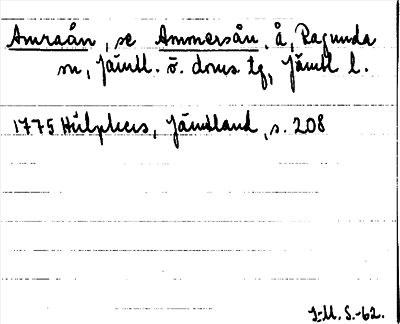 Amraån, se Ammersån, å, Ragunda
sn, Jämtl. ö. doms tg, Jämtl l.
1775 Hülphers, Jämtland, s. 208
I-M. S.-62.